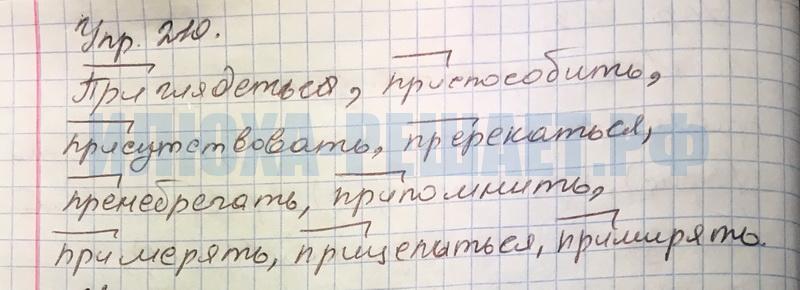 Упр. 210.
Приглядеться, приспособить,
присутствовать, пререкаться,
ИЛЮХА-РЕШАЕТ.РФ
пренебрегать, припомнить,
примерять, прицепиться, примирять.